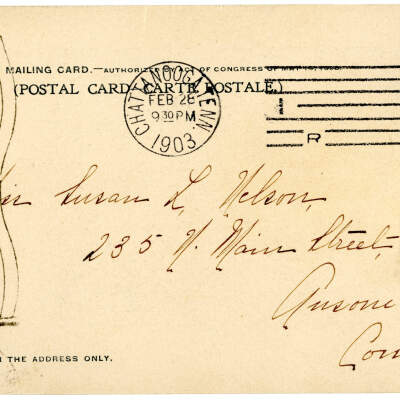 MAILING CARD.—AUTHORIZED BY ACT OF CONGRESS OF MAY 19, 1898.
(POSTAL CARD CARTE POSTALE.)
CHATTANOOGA TENN.
FEB 28
9 30 PM
1903
1
R
Susan L. Nelson,
235 N. Main Street,
THE ADDRESS ONLY.